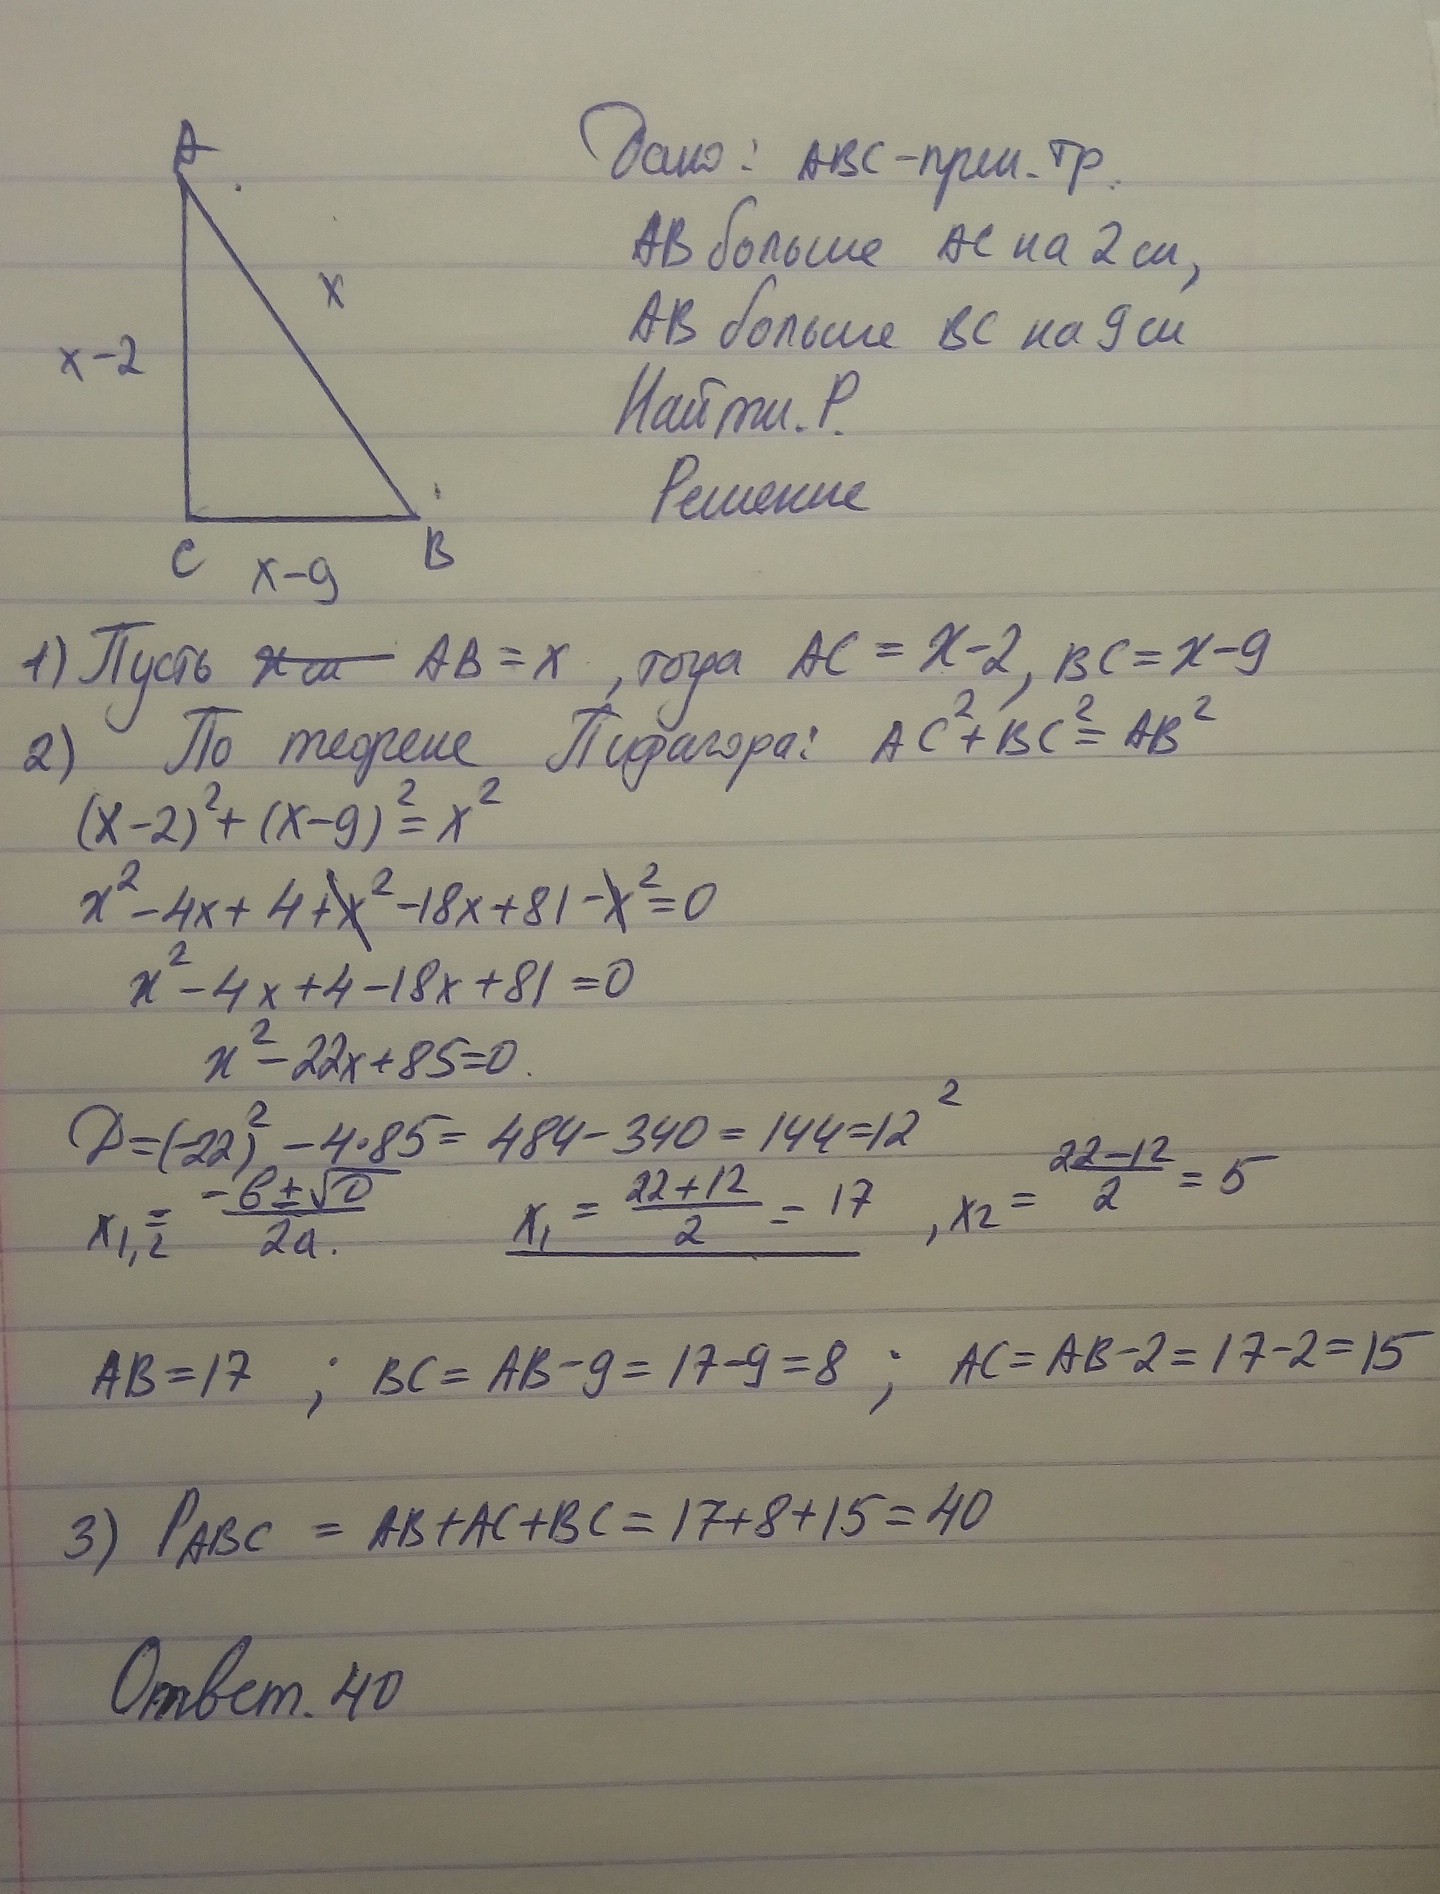 A
x
x-2
C
x-9
B
Дано: ABC-прям. тр.
AB больше AC на 2см,
AB больше BC на 9см
Найти. P.
Решение
1) Пусть AB = x , тогда AC = x-2, BC = x-9
2) По теореме Пифагора: AC² + BC² = AB²
(x-2)² + (x-9)² = x²
x² - 4x + 4 + x² - 18x + 81 - x² = 0
x² - 4x + 4 - 18x + 81 = 0
x² - 22x + 85 = 0.
D = (-22)² - 4·85 = 484 - 340 = 144 = 12²
x1,2 = (-b ± √D)/2a. x1 = (22+12)/2 = 17 , x2 = (22-12)/2 = 5
AB = 17 ; BC = AB - 9 = 17 - 9 = 8 ; AC = AB - 2 = 17 - 2 = 15
3) PABC = AB + AC + BC = 17 + 8 + 15 = 40
Ответ. 40